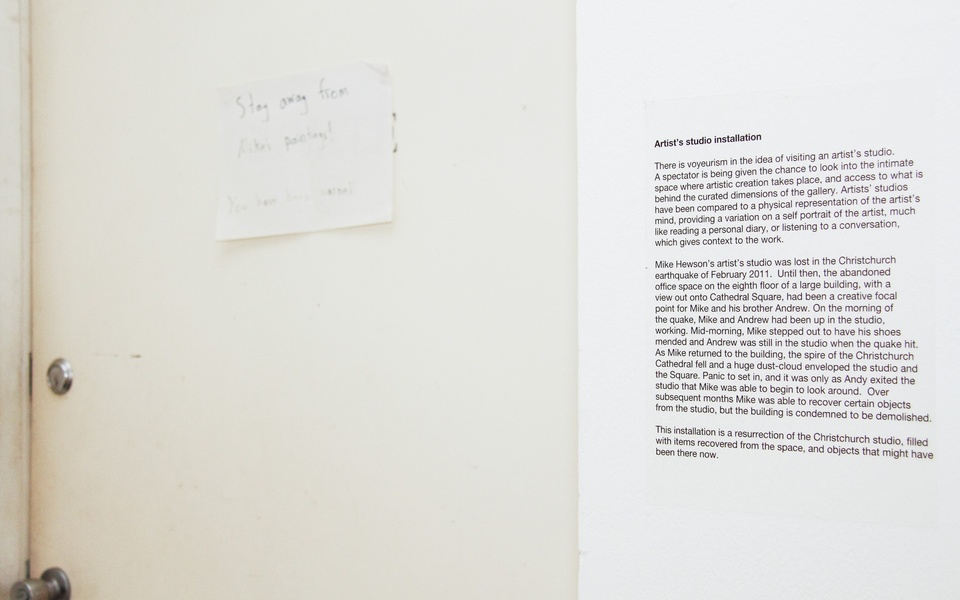 Stay away from
Mike's paintings!
You have been warned
Artist's studio installation
There is voyeurism in the idea of visiting an artist's studio.
A spectator is being given the chance to look into the intimate
space where artistic creation takes place, and access to what is
behind the curated dimensions of the gallery. Artists' studios
have been compared to a physical representation of the artist's
mind, providing a variation on a self portrait of the artist, much
like reading a personal diary, or listening to a conversation,
which gives context to the work.
Mike Hewson's artist's studio was lost in the Christchurch
earthquake of February 2011. Until then, the abandoned
office space on the eighth floor of a large building, with a
view out onto Cathedral Square, had been a creative focal
point for Mike and his brother Andrew. On the morning of
the quake, Mike and Andrew had been up in the studio,
working. Mid-morning, Mike stepped out to have his shoes
mended and Andrew was still in the studio when the quake hit.
As Mike returned to the building, the spire of the Christchurch
Cathedral fell and a huge dust-cloud enveloped the studio and
the Square. Panic to set in, and it was only as Andy exited the
studio that Mike was able to begin to look around. Over
subsequent months Mike was able to recover certain objects
from the studio, but the building is condemned to be demolished.
This installation is a resurrection of the Christchurch studio, filled
with items recovered from the space, and objects that might have
been there now.